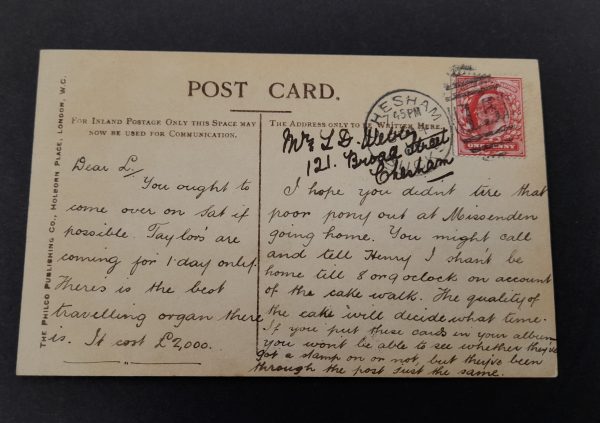 POST CARD.
FOR INLAND POSTAGE ONLY THIS SPACE MAY
NOW BE USED FOR COMMUNICATION.
THE ADDRESS ONLY TO BE WRITTEN HERE.
THE PHILCO PUBLISHING CO., HOLBORN PLACE, LONDON, W.C.
CHESHAM
7 45 PM
ONE PENNY
L. D. Webb
121. Broad Street
Chesham
Dear L,
You ought to
come over on Sat if
possible. Taylors' are
coming for 1 day only.
Theres is the best
travelling organ there
is. It cost £2,000.
I hope you didnt tire that
poor pony out at Missenden
going home. You might call
and tell Henry I shan't be
home till 8 or 9 oclock on account
of the cake walk. The quality of
the cake will decide what time.
If you put these cards in your album
you won't be able to see whether they've
got a stamp on or not, but they've been
through the post just the same.